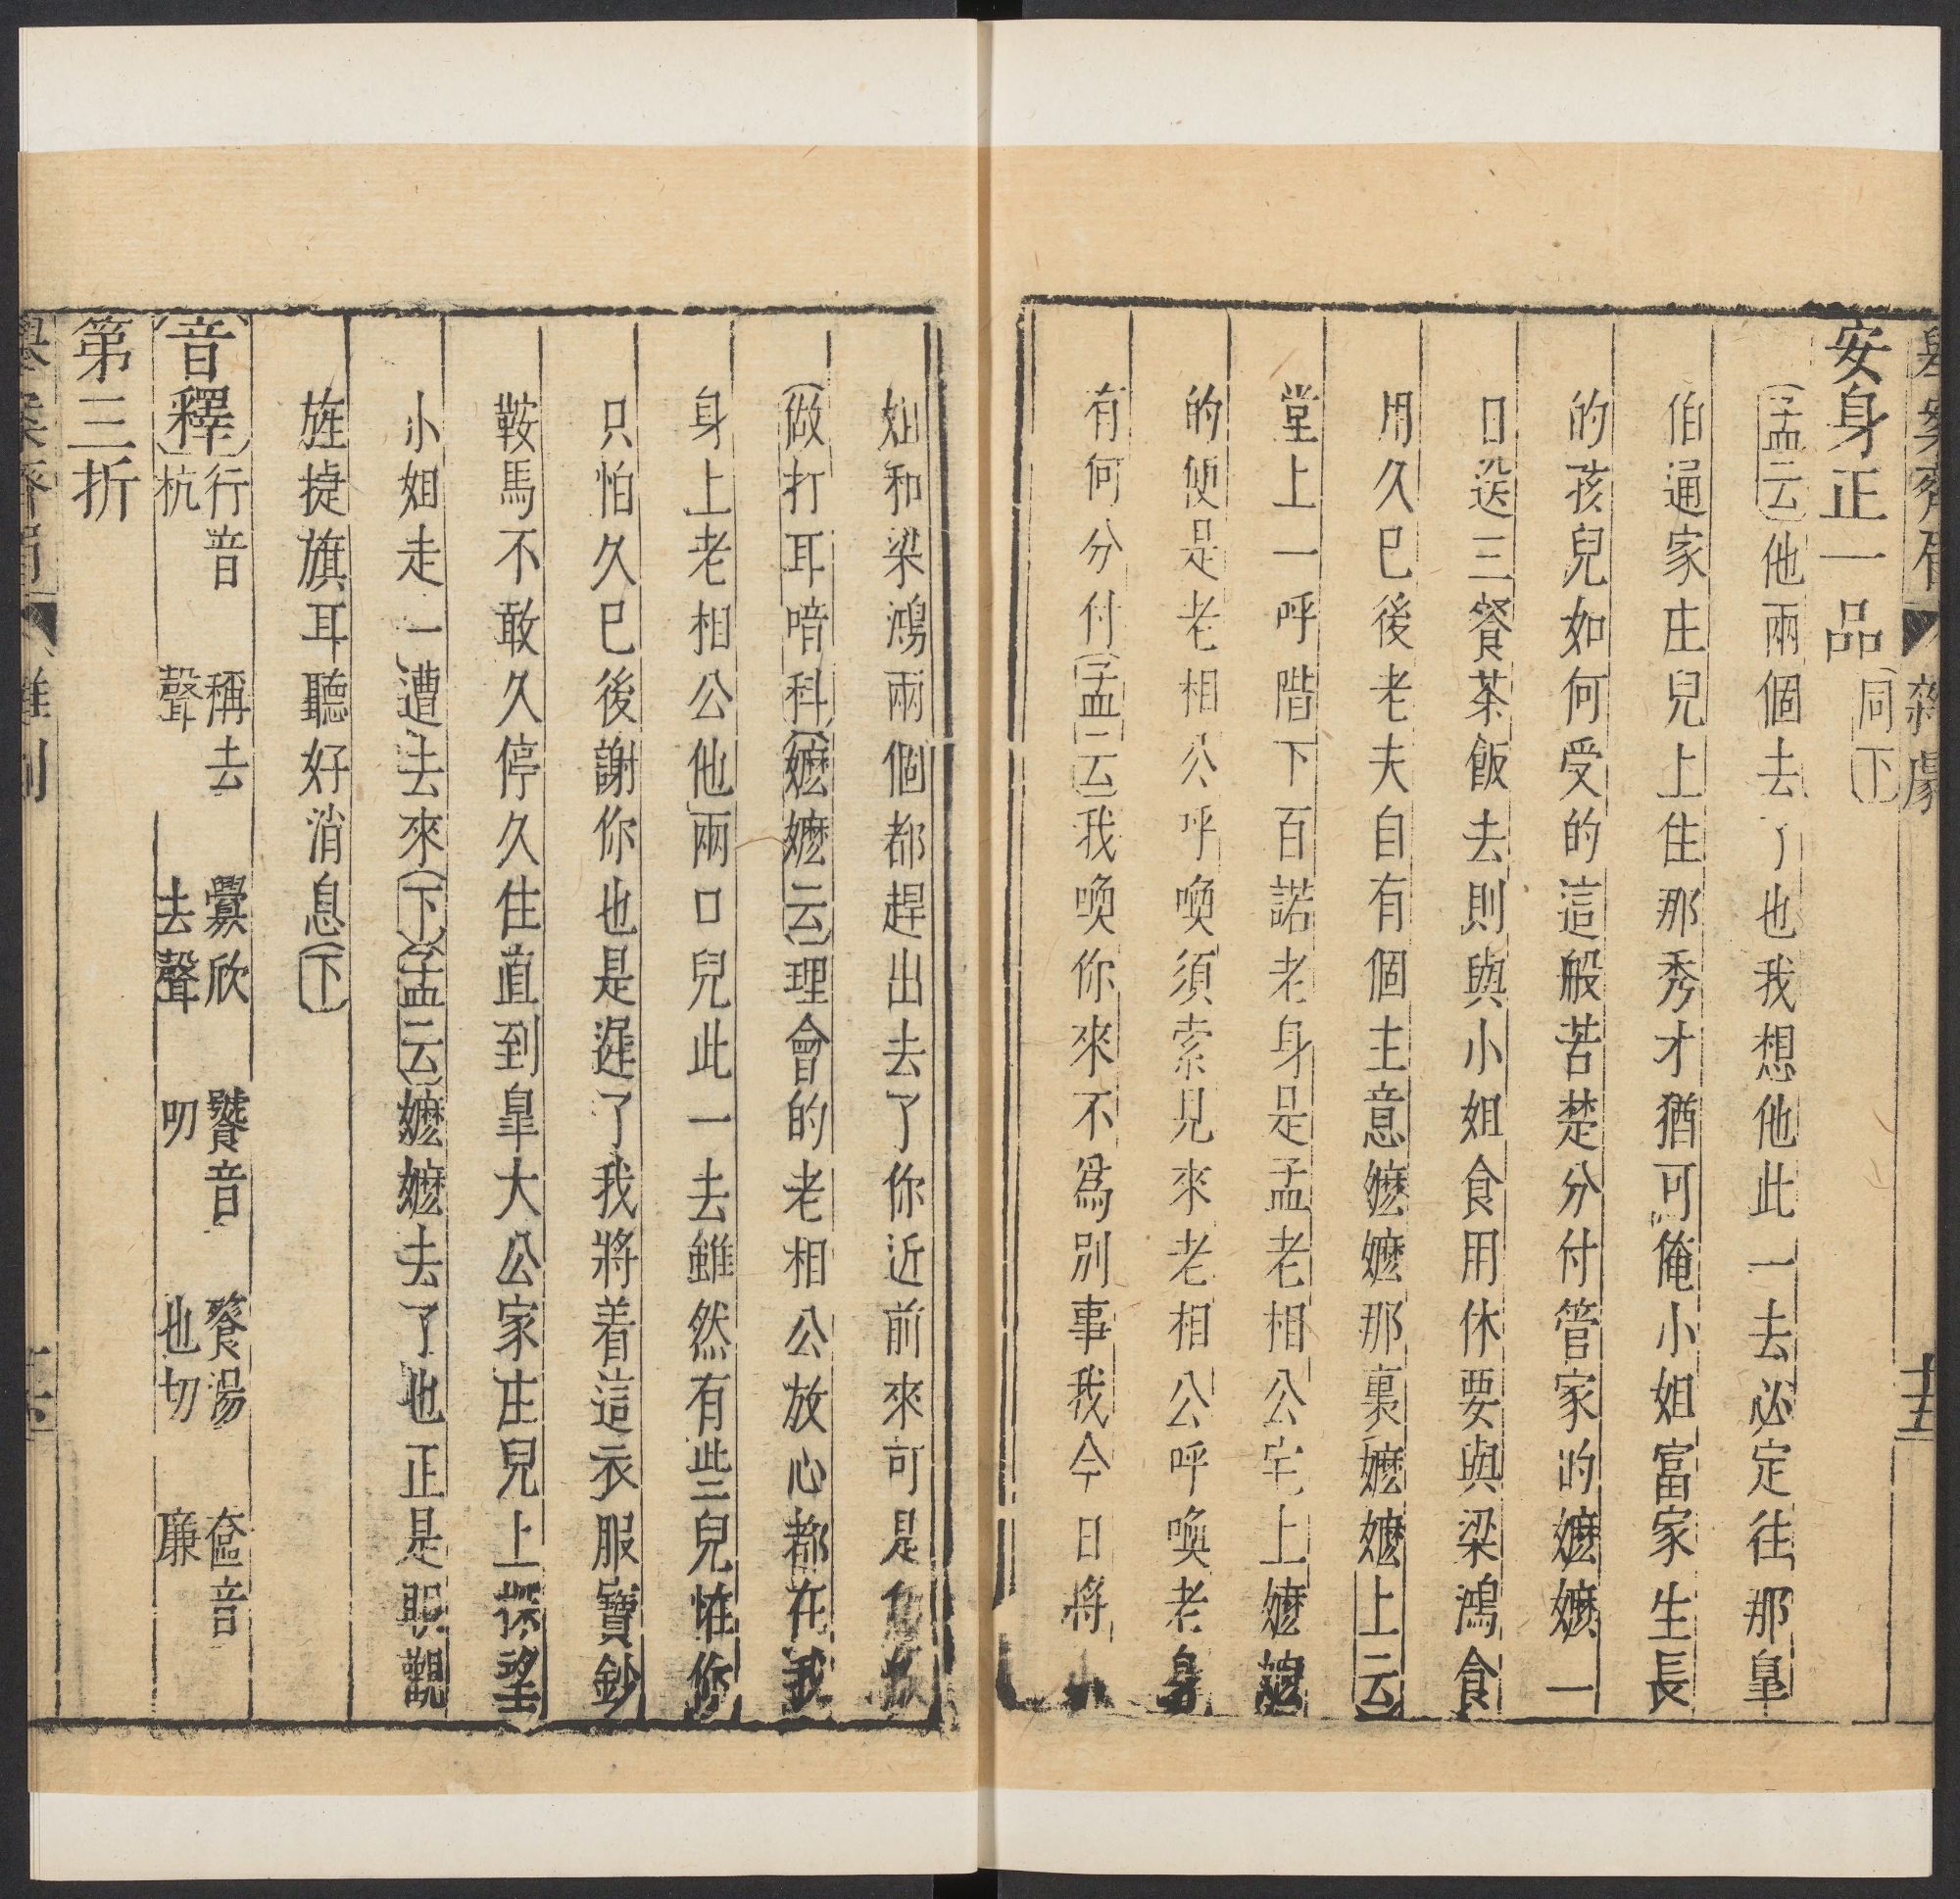 舉案齊眉 雜劇 十五
安身正一品(同下)
(孟云)他兩個去了也我想他此一去必定往那皐
伯通家庄兒上住那秀才猶可俺小姐富家生長
的孩兒如何受的這般苦楚分付管家的嬤嬤一
日送三餐茶飯去則與小姐食用休要與梁鴻食
用久已後老夫自有個主意嬤嬤那裏嬤嬤上云
堂上一呼階下百諾老身是孟老相公宅上嬤嬤
的便是老相公呼喚須索見來老相公呼喚老身
有何分付(孟云)我喚你來不爲別事我今日將小
姐和梁鴻兩個都趕出去了你近前來可是
(做打耳喑科)(嬤嬤云)理會的老相公放心都在我
身上老相公他兩口兒此一去雖然有些兒恠你
只怕久已後謝你也是遲了我將着這衣服寶鈔
鞍馬不敢久停久住直到皐大公家庄兒上探望
小姐走一遭去來(下)(孟云)嬤嬤去了也正是眼觀
旌捷旗耳聽好消息(下)
(音釋)行音杭 稱去聲 釁欣去聲 饕音叨 餐湯也切 奩音廉
第三折
舉案齊眉 雜劇